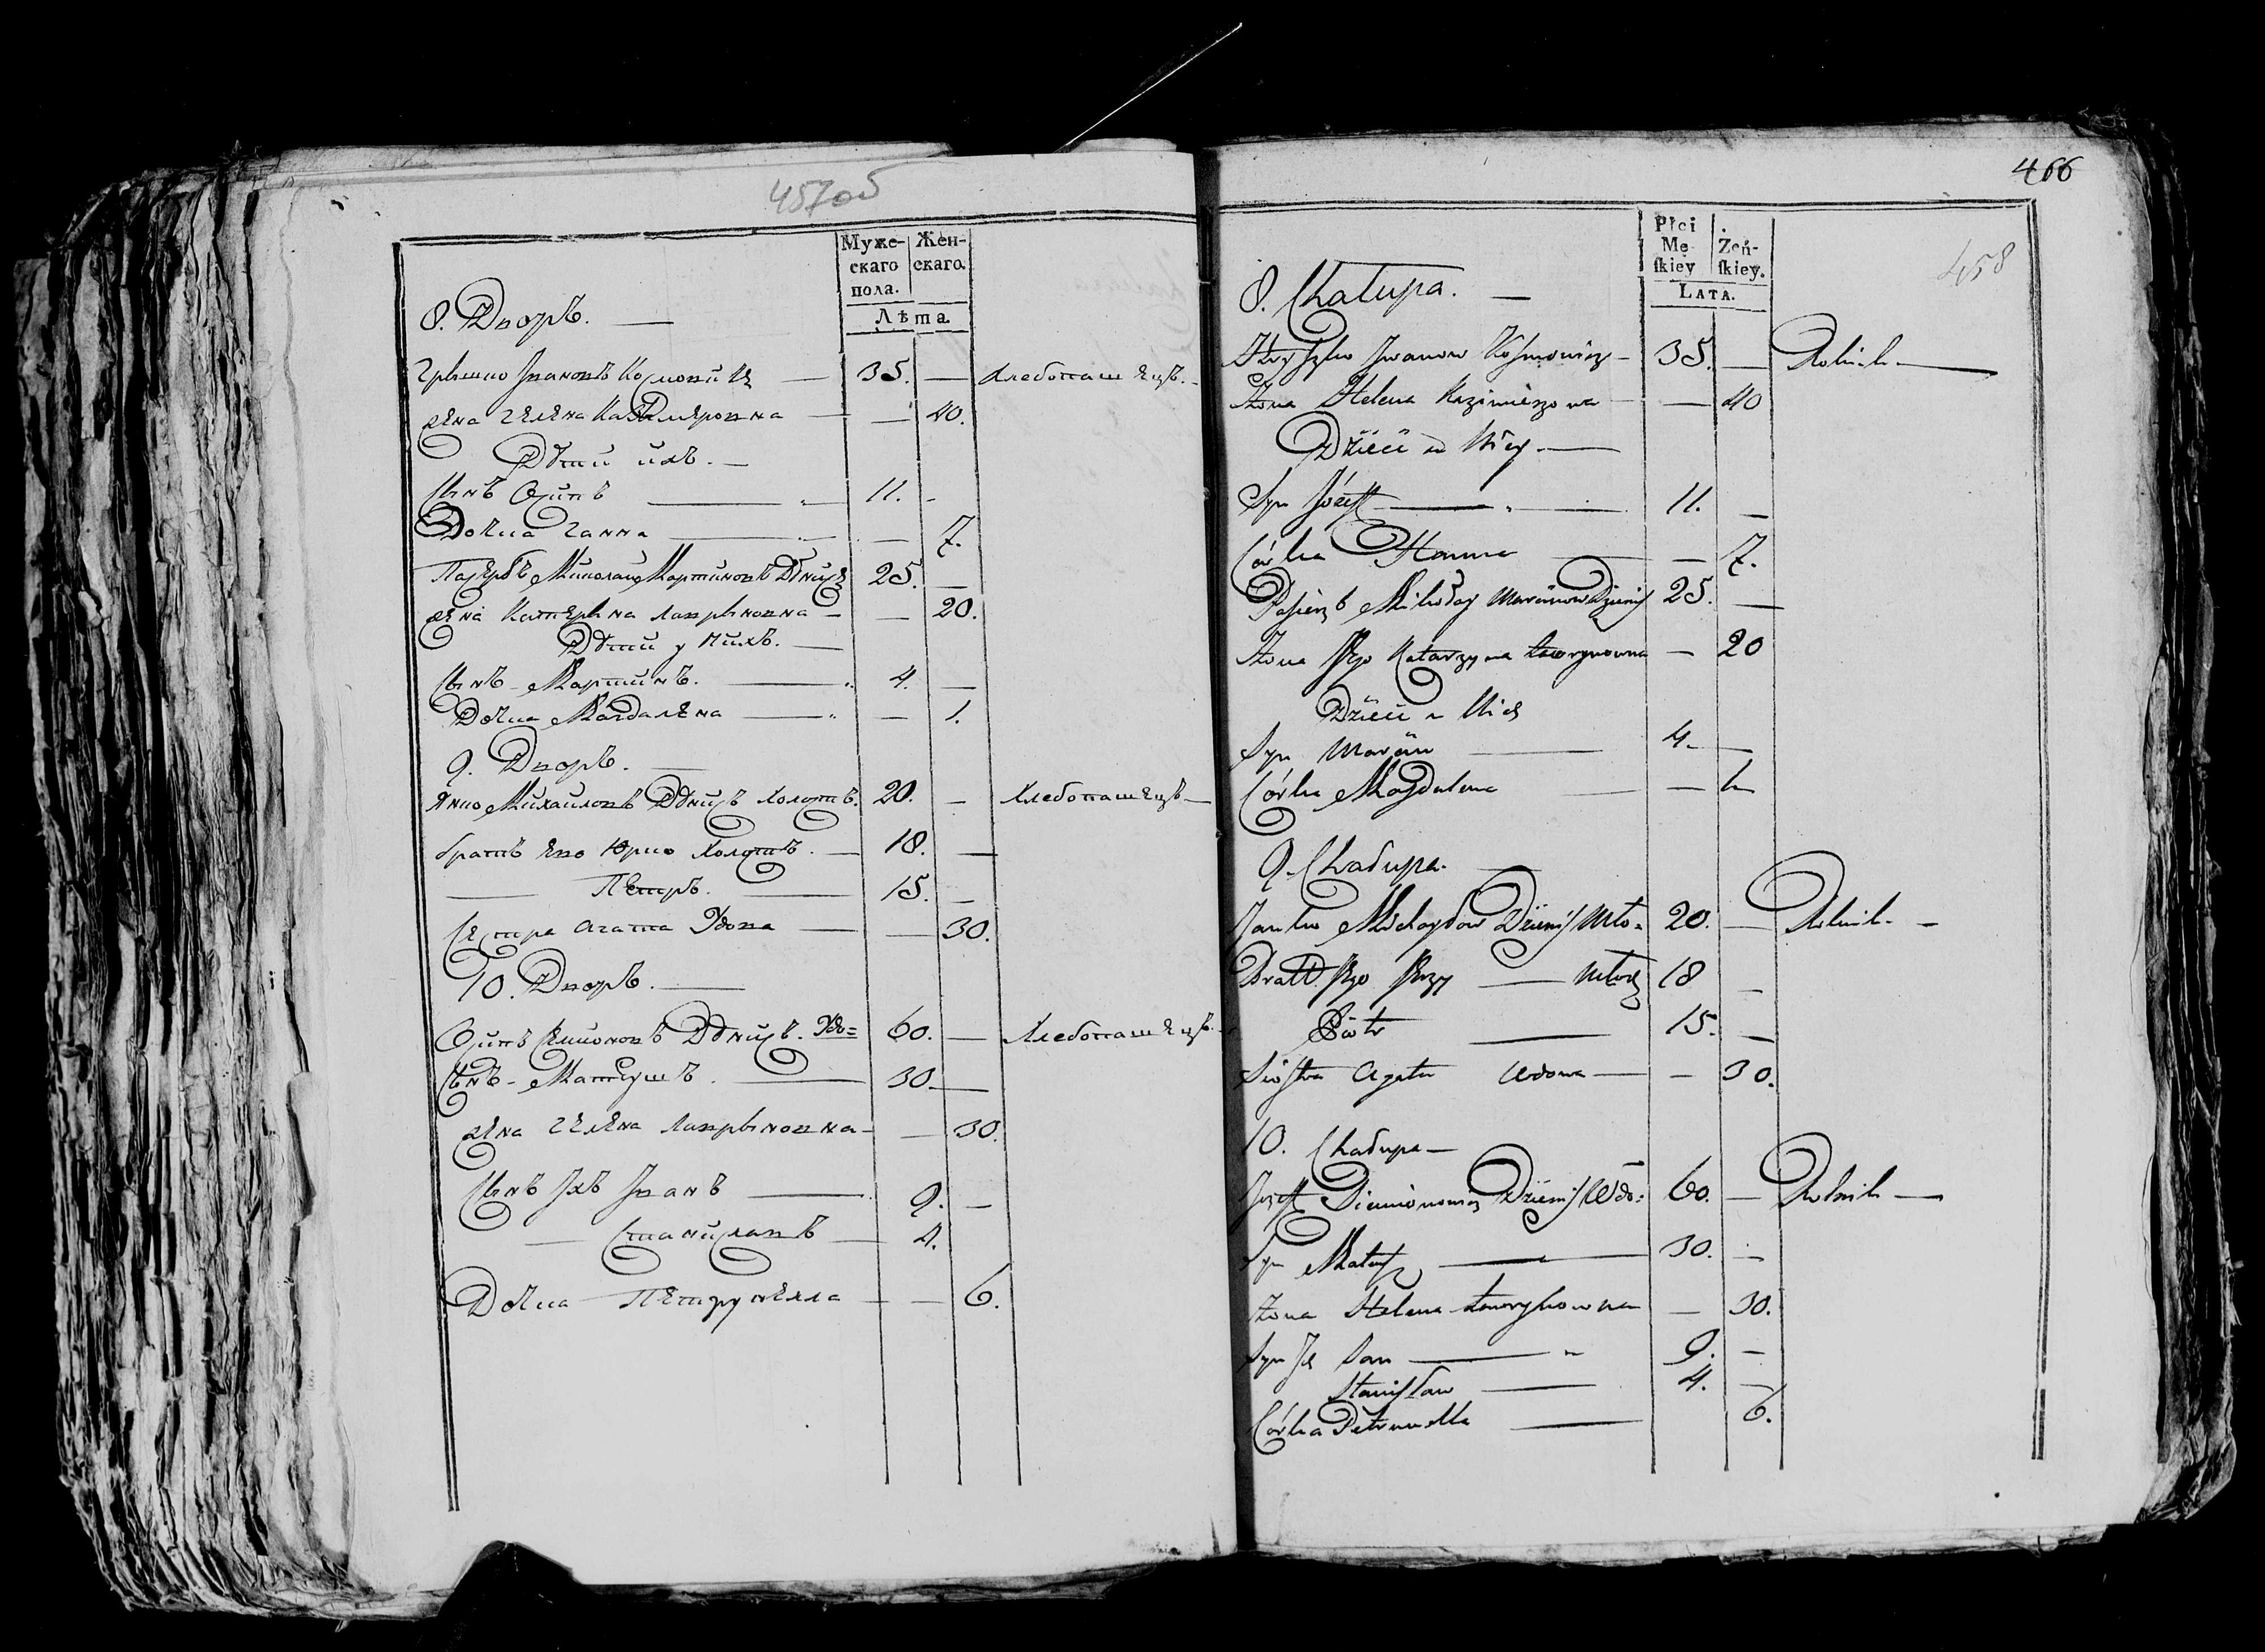 457об
Муже-
скаго
пола.
Жен-
скаго.
Лѣта
8. Дворъ.
Грышко Ивановъ Космовичъ — 35. — Хлебопашецъ.
жена Гелена Казимеровна — 40.
Дѣти ихъ. —
Сынъ Осипъ — 11. -
Дочка Ганна — 7.
Пасербъ Миколай Мартиновъ Дѣнисъ 25. —
жена Катерына Лаврыновна — 20.
Дѣти у нихъ. —
Сынъ Мартинъ. — 4. —
Дочка Магдалена — 1.
9. Дворъ. —
Янко Михайловъ Дѣнисъ Холостъ. 20. — Хлебопашецъ —
братъ его Юрко Холостъ. — 18. —
— Петръ. — 15. —
Сестра Агата Удова — 30.
10. Дворъ. —
Осипъ Симоновъ Дѣнисъ. Удо= 60. — Хлебопашецъ.
Сынъ - Матеушъ. — 30. —
жена Гелена Лаврыновна - — 30.
Сынъ Ихъ Иванъ — 9. —
— Станиславъ — 4.
Дочка Петрунелла — 6.
466
458
Płci
Mę-
skiey
Zeń-
skiey.
LATA.
8. Chałupa. —
Hryszko Iwanow Kosmowicz — 35. — Rolnik —
Żona Helena Kazimierzowna — 40
Dzieci u Niey. —
Syn Józeff — 11. —
Córka Hanna — 7.
Pasierb Mikołay Marcinow Dzienis 25. —
Żona Jego Katarzyna Ławrynowna — 20
Dzieci u Nich
Syn Marcin — 4. —
Córka Magdalena — 1
9. Chałupa. —
Janko Michayłow Dzienis Mło= 20. — Rolnik —
Bratt Jego Jerzy — Młodz 18 —
Piotr — 15. —
Siostra Agata Wdowa — 30.
10. Chałupa —
Jozeff Dzienis Wdo= 60. — Rolnik —
Syn Mateusz — 30. —
Żona Helena Ławrynowna — 30.
Syn Ich Jan — 9. —
Stanisław — 4. —
Córka Petrunella — 6.